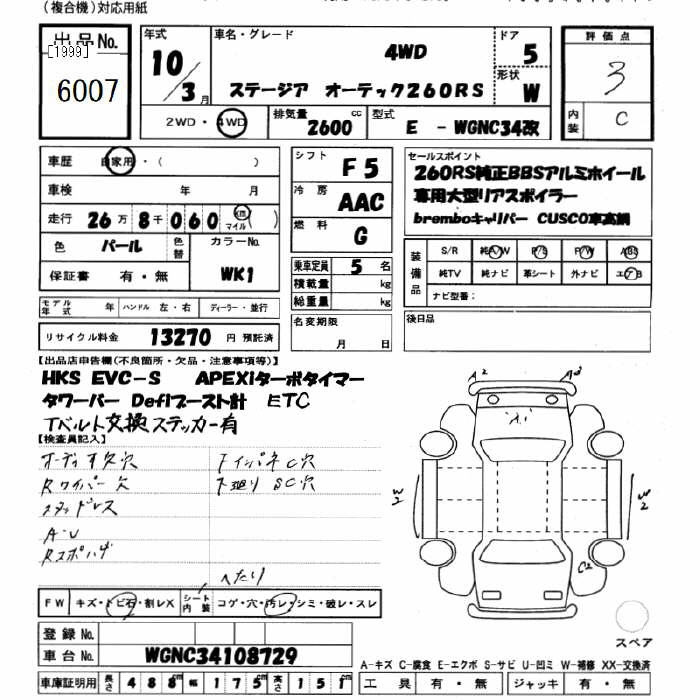 (複合機)対応用紙
出品No.
[1999]
6007
年式 10/3月
車名・グレード
4WD
ステージア オーテック260RS
ドア 5
形状 W
評価点
3
内装 C
2WD・4WD
排気量 2600 cc
型式 E - WGNC34改
車歴 自家用・( )
車検 年 月
走行 26万8千060 km マイル( )
色 パール 色替
カラーNo. WK1
保証書 有・無
シフト F5
冷房 AAC
燃料 G
乗車定員 5名
積載量 kg
総重量 kg
名変期限
月 日
セールスポイント
260RS純正BBSアルミホイール
専用大型リアスポイラー
bremboキャリパー CUSCO車高調
装備品
S/R 純A/W P/S P/W ABS
純TV 純ナビ 革シート 外ナビ エアB
ナビ型番:
後日品
モデル年式 年 ハンドル 左・右 ディーラー・並行
リサイクル料金 13270 円 預託済
【出品店申告欄(不良箇所・欠品・注意事項等)】
HKS EVC-S APEXiターボタイマー
タワーバー Defiブースト計 ETC
Tベルト交換ステッカー有
【検査員記入】
オーディオ欠穴
Rワイパー欠
スタッドレス
A・U
Rスポハゲ
下廻り SC穴
へたり
FW キズ・トビ石・割レX
シート内装 コゲ・穴・汚レ・シミ・破レ・スレ
登録No.
車台No. WGNC34108729
車庫証明用 長さ 488cm 幅 175cm 高さ 151cm
A2
W2
W2
C2
スペア
A-キズ C-腐食 E-エクボ S-サビ U-凹ミ W-補修 XX-交換済
工具 有・無 ジャッキ 有・無